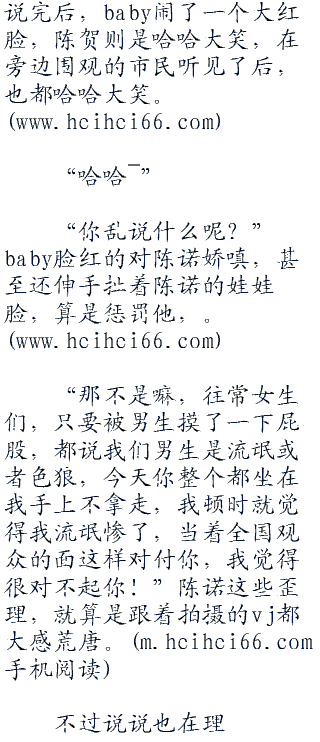 说完后，baby闹了一个大红
脸，陈贺则是哈哈大笑，在
旁边围观的市民听见了后，
也都哈哈大笑。
(www.hcihci66.com)
“哈哈¯”
“你乱说什么呢？”
baby脸红的对陈诺娇嗔，甚
至还伸手扯着陈诺的娃娃
脸，算是惩罚他，。
(www.hcihci66.com)
“那不是嘛，往常女生
们，只要被男生摸了一下屁
股，都说我们男生是流氓或
者色狼，今天你整个都坐在
我手上不拿走，我顿时就觉
得我流氓惨了，当着全国观
众的面这样对付你，我觉得
很对不起你！”陈诺这些歪
理，就算是跟着拍摄的vj都
大感荒唐。(m.hcihci66.com
手机阅读)
不过说说也在理